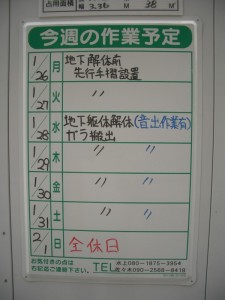 占用面積
今週の作業予定
1/26 月 地下解体前
先行手摺設置
1/27 火 〃
1/28 水 地下躯体解体(音出作業有)
ガラ搬出
1/29 木 〃 〃
1/30 金 〃 〃
1/31 土 〃 〃
2/1 日 全休日
お気付きの点は
右記迄ご連絡下さい。
TEL